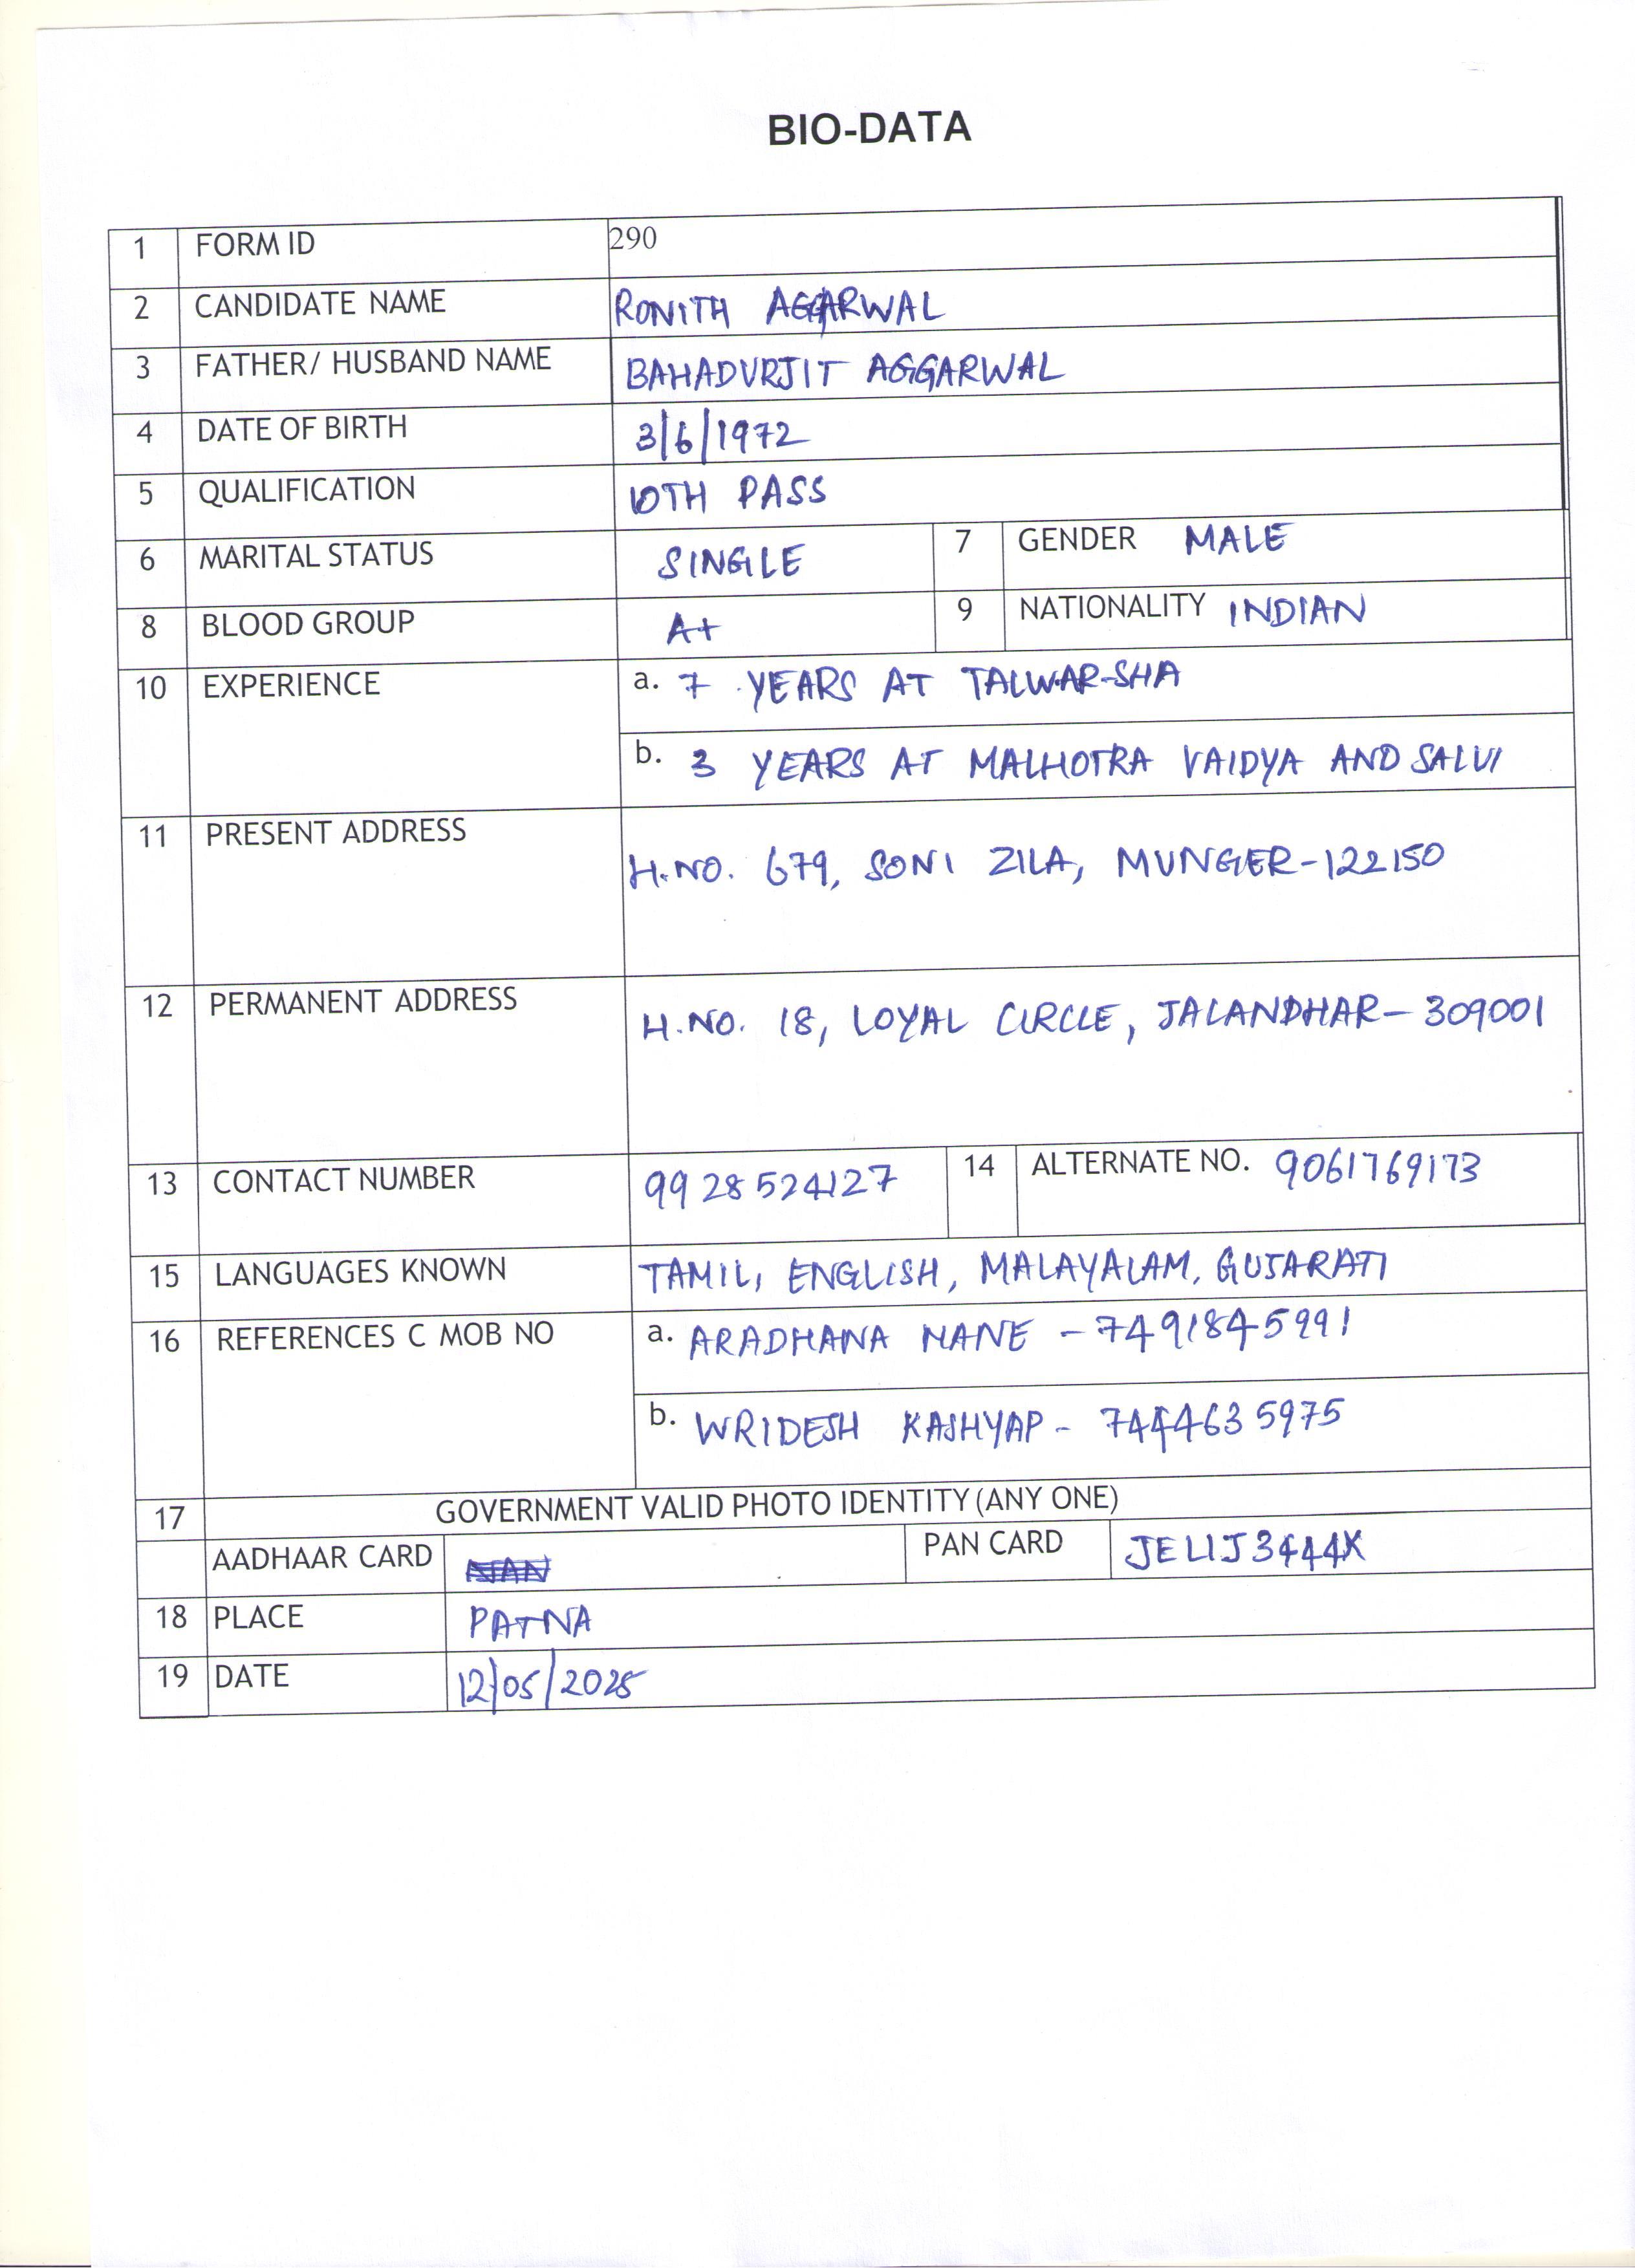 BIO-DATA
1 FORM ID 290
2 CANDIDATE NAME RONITH AGGARWAL
3 FATHER/ HUSBAND NAME BAHADURJIT AGGARWAL
4 DATE OF BIRTH 3/6/1972
5 QUALIFICATION 10TH PASS
6 MARITAL STATUS SINGLE 7 GENDER MALE
8 BLOOD GROUP A+ 9 NATIONALITY INDIAN
10 EXPERIENCE a. 7 YEARS AT TALWAR-SHA
b. 3 YEARS AT MALHOTRA VAIDYA AND SALVI
11 PRESENT ADDRESS
H.NO. 679, SONI ZILA, MUNGER-122150
12 PERMANENT ADDRESS H.NO. 18, LOYAL CIRCLE, JALANDHAR-309001
13 CONTACT NUMBER 9928524127 14 ALTERNATE NO. 9061769173
15 LANGUAGES KNOWN TAMIL, ENGLISH, MALAYALAM, GUJARATI
16 REFERENCES C MOB NO a. ARADHANA MANE - 7491845991
b. WRIDESH KASHYAP - 7444635975
17 GOVERNMENT VALID PHOTO IDENTITY (ANY ONE)
AADHAAR CARD NAN PAN CARD JELIJ3444K
18 PLACE PATNA
19 DATE 12/05/2025